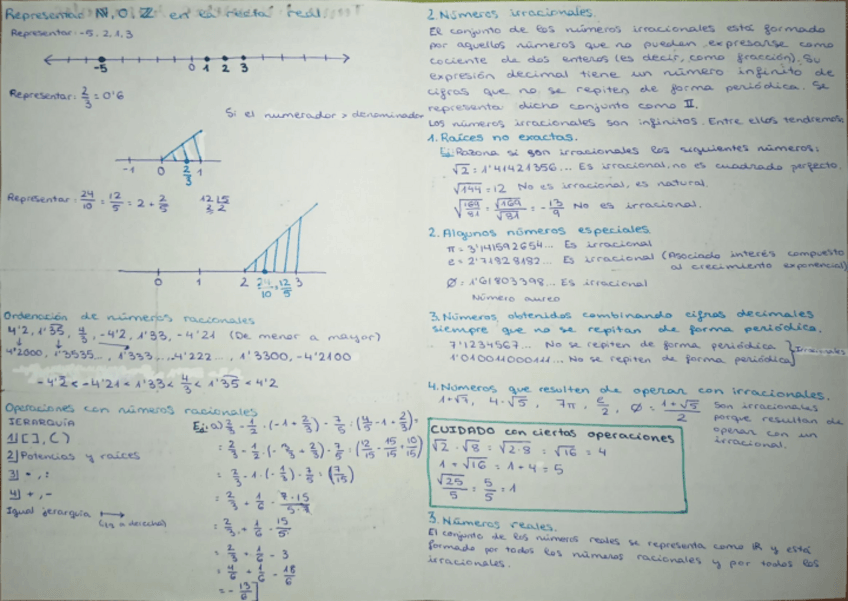 Representar N, Q, Z en la recta real
Representar: -5, 2, 1, 3
-5 0 1 2 3
Representar: 2/3 = 0'6
Si el numerador > denominador
-1 0 2/3 1
Representar: 24/10 = 12/5 = 2 + 2/5
12 |5
2 2
0 1 2 24/10, 12/5 3
Ordenación de números racionales
4'2, 1'35, 4/3, -4'2, 1'33, -4'21 (De menor a mayor)
4'2000, 1'3535..., 1'333..., -4'222..., 1'3300, -4'2100
-4'2 < -4'21 < 1'33 < 4/3 < 1'35 < 4'2
Operaciones con números racionales
JERARQUÍA
1) [ ], ( )
2) Potencias y raíces
3) ·, :
4) +, -
Igual jerarquía
(izq → derecha)
Ej: a) 2/3 - 1/2 · (-1 + 2/3) - 7/5 : (4/5 - 1 + 2/3) =
= 2/3 - 1/2 · (-3/3 + 2/3) - 7/5 : (12/15 - 15/15 + 10/15)
= 2/3 - 1 · (-1/3) - 7/5 : (7/15)
= 2/3 + 1/6 - 7·15/5·7
= 2/3 + 1/6 - 15/5
= 2/3 + 1/6 - 3
= 4/6 + 1/6 - 18/6
= - 13/6
2. Números irracionales.
El conjunto de los números irracionales está formado
por aquellos números que no pueden expresarse como
cociente de dos enteros (es decir, como fracción). Su
expresión decimal tiene un número infinito de
cifras que no se repiten de forma periódica. Se
representa dicho conjunto como II.
Los números irracionales son infinitos. Entre ellos tendremos:
1. Raíces no exactas.
Ej: Razona si son irracionales los siguientes números:
√2 = 1'41421356... Es irracional, no es cuadrado perfecto.
√144 = 12 No es irracional, es natural.
√169/81 = √169/√81 = -13/9 No es irracional.
2. Algunos números especiales
π = 3'141592654... Es irracional
e = 2'71828182... Es irracional (Asociado interés compuesto
al crecimiento exponencial)
Ø = 1'61803398... Es irracional
Número aureo
3. Números obtenidos combinando cifras decimales
siempre que no se repitan de forma periódica.
7'1234567... No se repiten de forma periódica
1'010011000111... No se repiten de forma periódica
Irracionales
4. Números que resulten de operar con irracionales.
1+√3, 4·√5, 7π, e/2, Ø = 1+√5/2 Son irracionales
porque resultan de
operar con un
irracional.
CUIDADO con ciertas operaciones
√2 · √8 = √2·8 = √16 = 4
1 + √16 = 1 + 4 = 5
√25/5 = 5/5 = 1
3. Números reales.
El conjunto de los números reales se representa como IR y está
formado por todos los números racionales y por todos los
irracionales.